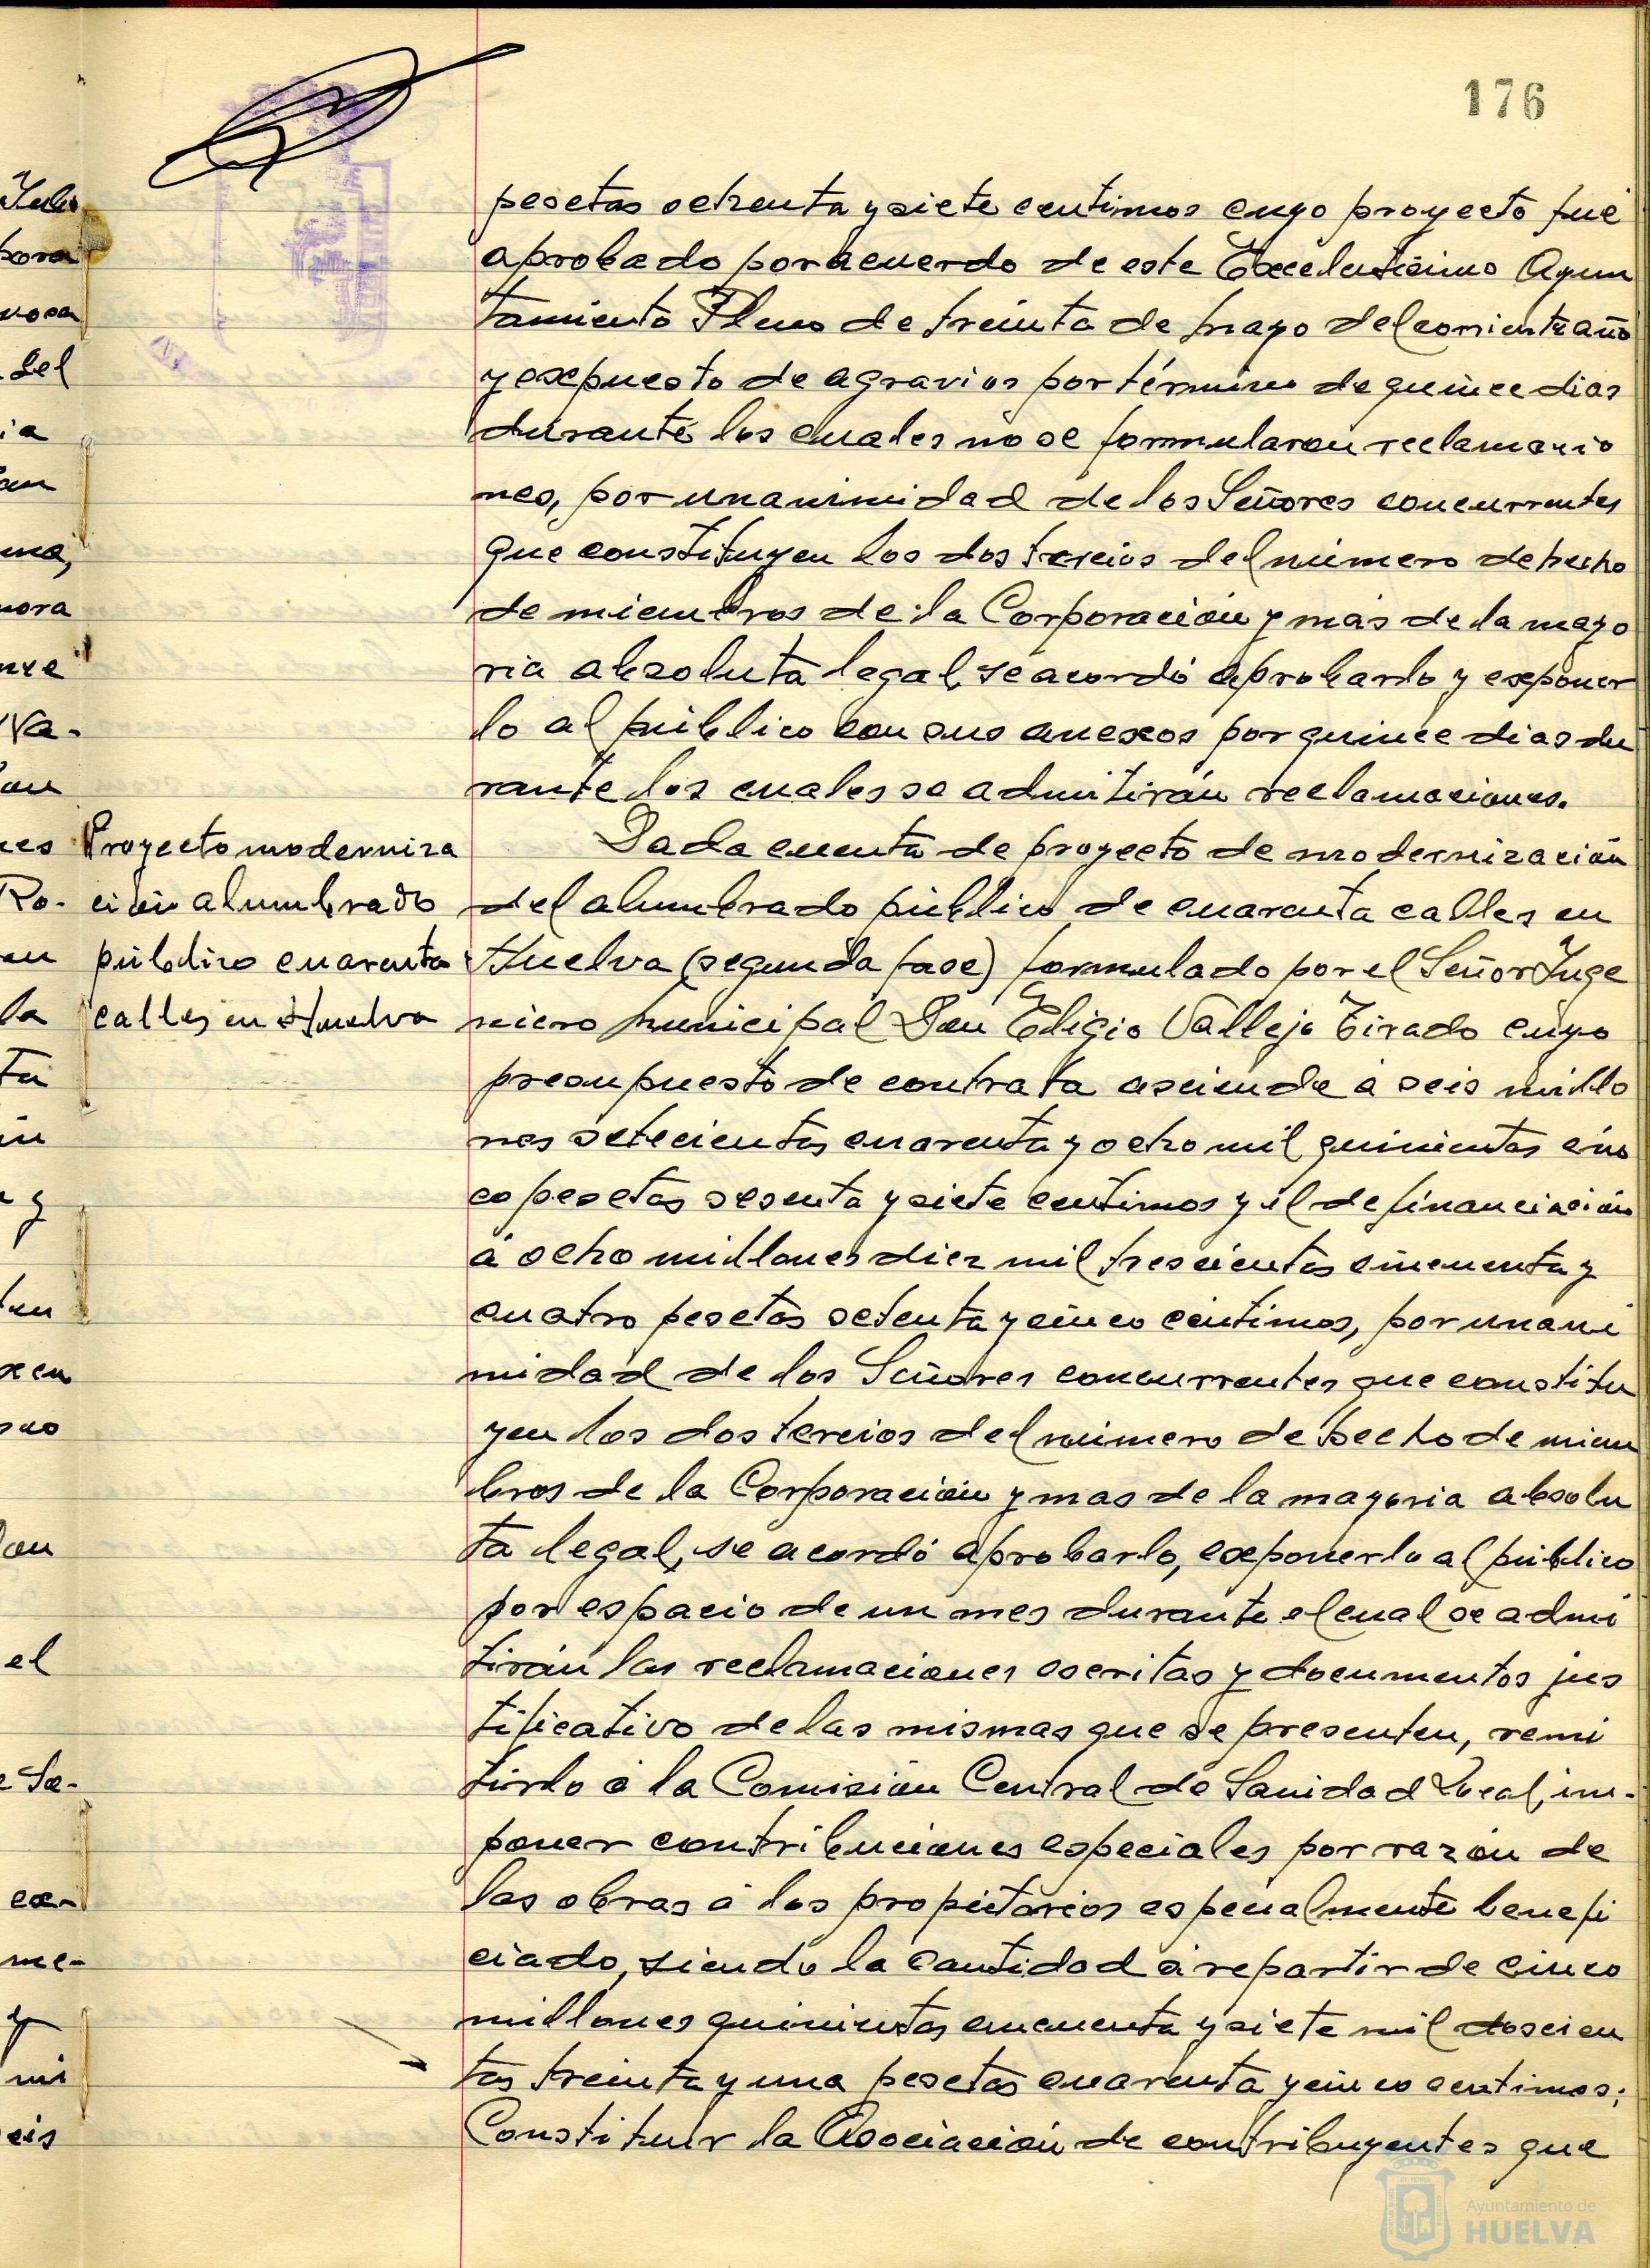 176
pesetas ochenta y siete centimos cuyo proyecto fué
aprobado por acuerdo de este Excelentisimo Ayun
tamiento Pleno de treinta de mayo del corriente año
y expuesto de agravios por término de quince dias
durante los cuales no se formularon reclamacio
nes, por unanimidad de los Señores concurrentes
que constituyen los dos tercios del número de hecho
de miembros de la Corporación y más de la mayo
ria absoluta legal, se acordó aprobarlo y exponer
lo al público con sus anexos por quince dias du
rante los cuales se admitirán reclamaciones.
Proyecto moderniza
ción alumbrado
público cuarenta
calles en Huelva
Dada cuenta de proyecto de modernización
del alumbrado público de cuarenta calles en
Huelva (segunda fase) formulado por el Señor Inge
niero municipal Don Eligio Vallejo Tirado cuyo
presupuesto de contrata asciende a seis millo
nes setecientas cuarenta y ocho mil quinientas cin
co pesetas sesenta y siete centimos y el de financiación
á ocho millones diez mil trescientas cincuenta y
cuatro pesetas setenta y cinco centimos, por unani
midad de los Señores concurrentes que constitu
yen los dos tercios del número de hecho de miem
bros de la Corporación y mas de la mayoria absolu
ta legal, se acordó aprobarlo, exponerlo al público
por espacio de un mes durante el cual se admi
tirán las reclamaciones escritas y documentos jus
tificativo de las mismas que se presenten, remi
tirlo a la Comisión Central de Sanidad Local, im-
poner contribuciones especiales por razón de
las obras a los propietarios especialmente benefi
ciado, siendo la cantidad a repartir de cinco
millones quinientas cincuenta y siete mil doscien
tas treinta y una pesetas cuarenta y cinco centimos;
Constituir la Asociación de contribuyentes que
Ayuntamiento de
HUELVA